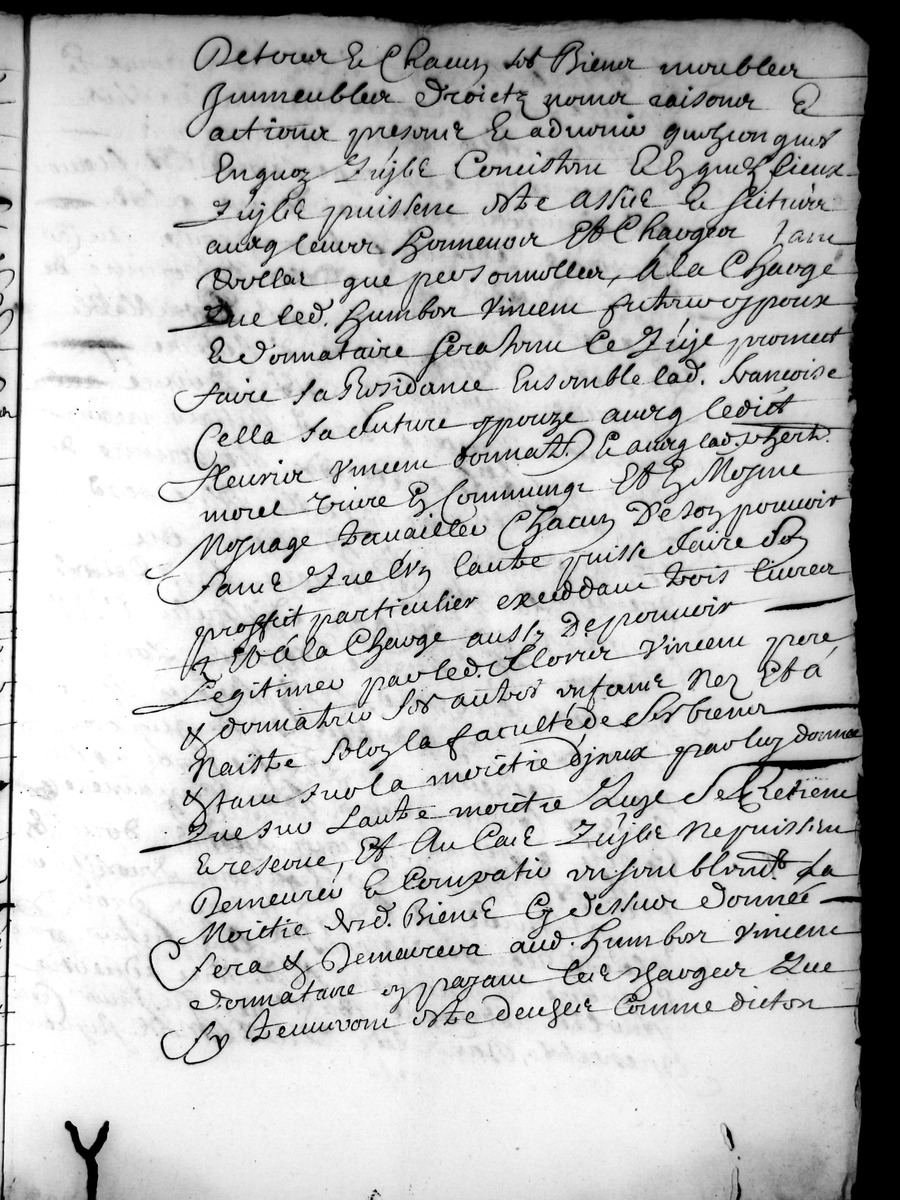 De tous Et Chacun ses Biens meubles
Immeubles droictz noms raisons Et
actions presens Et advenir quelzconques
En quoy quilz Concistent Et En quelz lieux
quilz puissent estre assis Et scitués
avecq leurs honneurs Et Charges tant
reelles que personnelles, A la Charge
que led. Humbert Vincent futeur espoux
Et donnataire sera tenu Et quil promect
faire sa Residance Ensemble lad. françoise
Cella sa future espouze avecq ledict
fleurier Vincent donnat.r Et avecq lad.
morel vivre En Commung Et En Mesme
Mesnage travailler Chacun De son pouvoir
sans que lun lautre puisse faire son
proffit particulier exceddant trois livres
Et A la Charge aussy De pouvoir
Legitimer par led. fleurier Vincent pere
& donnateur ses autres enfans Nez Et à
Naistre selon la faculté de ses biens
& tant sur la moictié dyceux par luy donnee
que sur lautre moictié quil se Retient
Et reserve, Et Au Cas quilz Ne puissent
Demeurer Et Compatir ensemblem.t La
Moictié desd. Biens Cy dessus donnée
sera & Demeurera aud. Humbert Vincent
donnataire en payant les charges que
sy treuvront estre deuhes Comme dict on